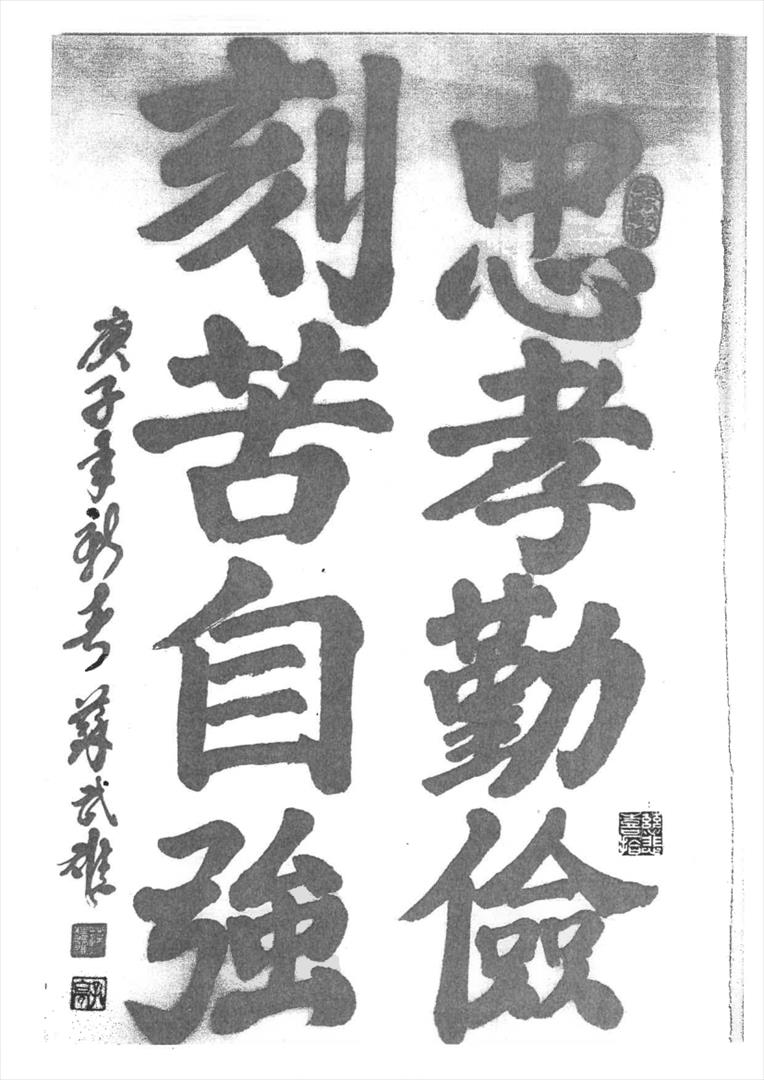 忠孝勤儉
刻苦自強
庚子年新春 蘇武雄
慈悲喜捨